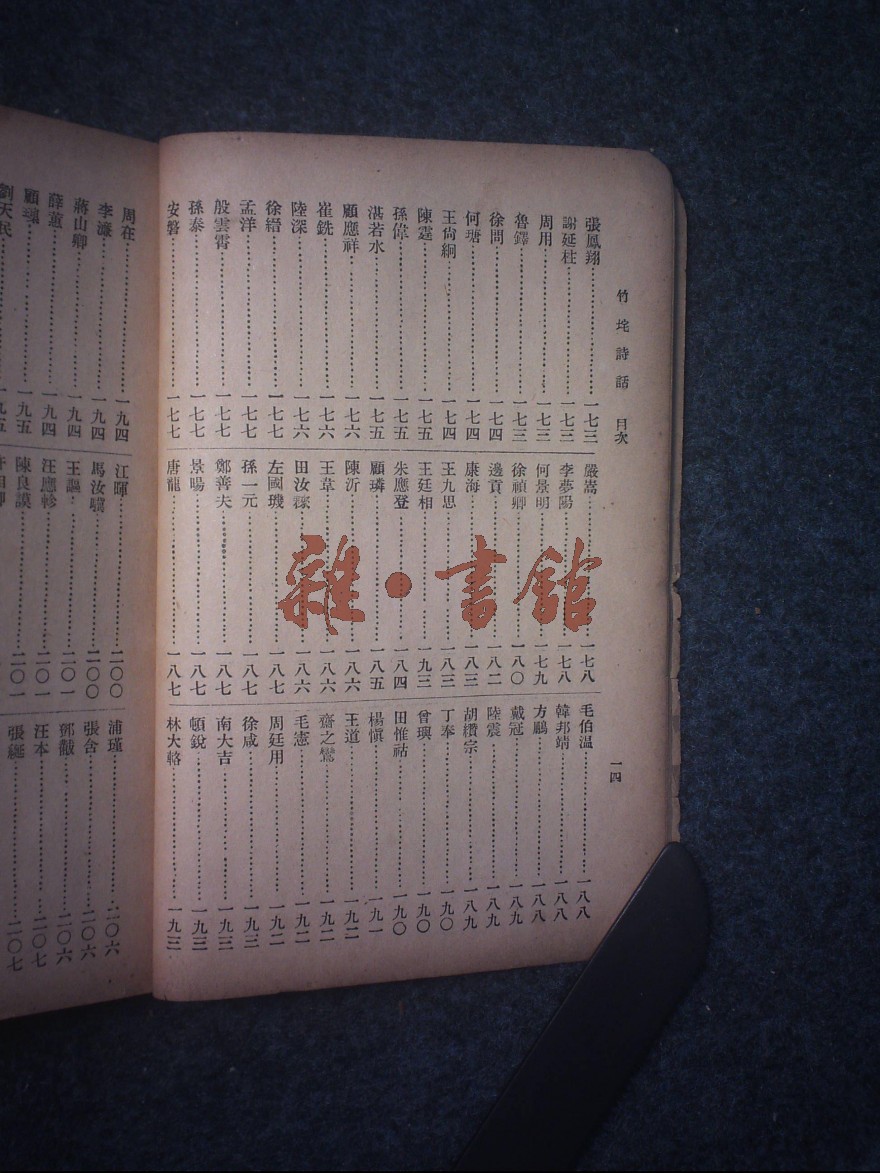 竹垞詩話 目次 一四
張鳳翔 一七三
謝廷柱 一七三
周用 一七三
魯鐸 一七三
徐問 一七四
何瑭 一七四
王尙絅 一七四
陳霆 一七五
孫偉 一七五
湛若水 一七五
顧應祥 一七六
崔銑 一七六
陸深 一七六
徐縉 一七七
孟洋 一七七
殷雲霄 一七七
孫泰 一七七
安磐 一七七
嚴嵩 一七八
李夢陽 一七八
何景明 一七九
徐禎卿 一八〇
邊貢 一八二
康海 一八三
王九思 一八三
王廷相 一九三
朱應登 一八四
顧璘 一八五
陳沂 一八六
王韋 一八六
田汝耔 一八六
左國璣 一八七
孫一元 一八七
鄭善夫 一八七
景暘 一八七
唐龍 一八七
毛伯溫 一八八
韓邦靖 一八八
方鵬 一八八
戴冠 一八九
陸震 一八九
胡纘宗 一八九
丁奉 一九〇
曾璵 一九〇
田惟祜 一九〇
楊愼 一九一
王道 一九二
齋之鸞 一九二
毛憲 一九二
周廷用 一九二
徐咸 一九三
南大吉 一九三
頓銳 一九三
林大輅 一九三
周在 一九四
李濂 一九四
蔣山卿 一九四
薛蕙 一九四
顧 一九五
劉天民 一九五
江暉 二〇〇
馬汝驥 二〇〇
王謳 二〇一
汪應軫 二〇一
陳良謨 二〇一
許相卿
浦瑾 二〇六
張含 二〇六
郭 二〇六
汪本 二〇七
張綖 二〇七
雜·書館